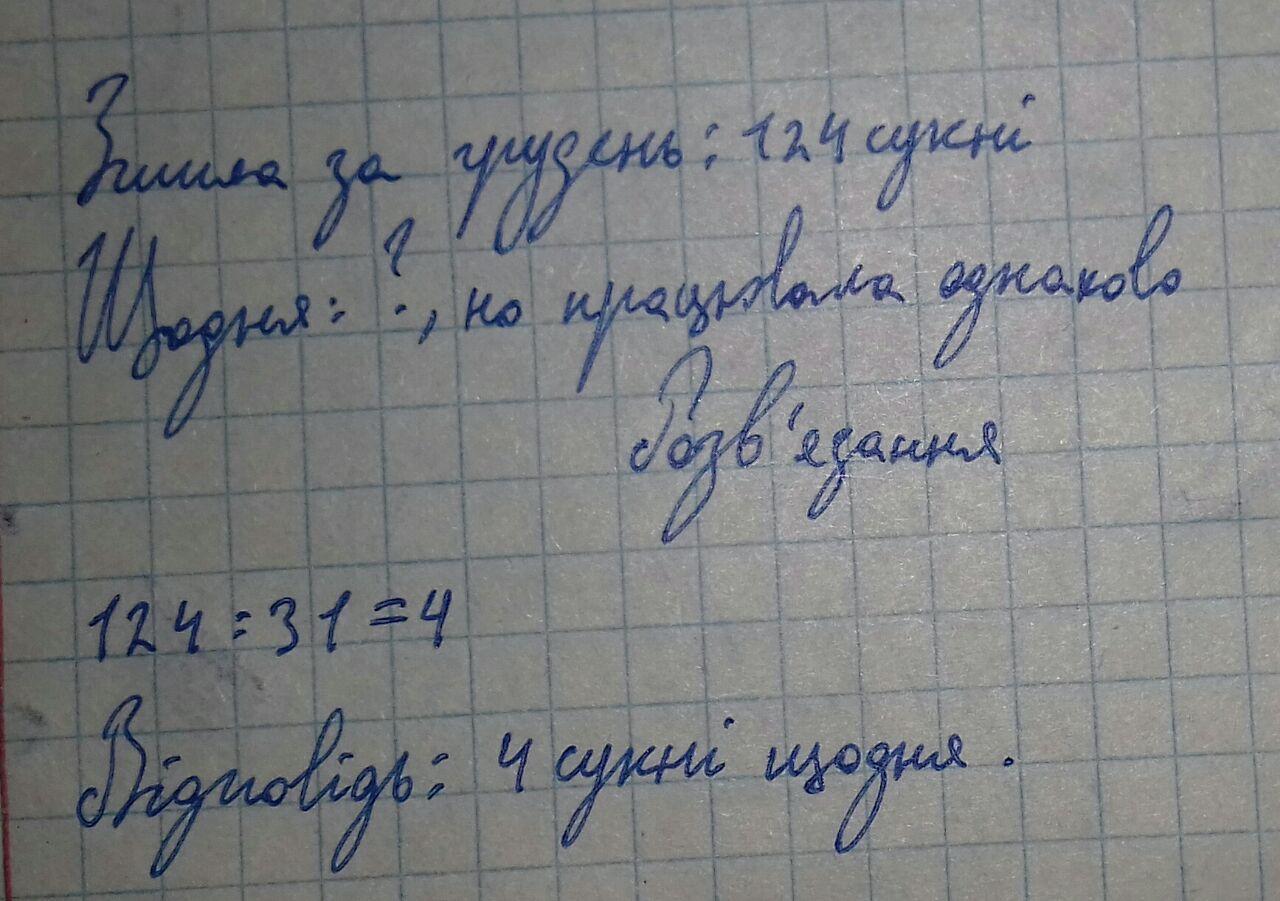 Зшила за грудень: 124 сукні
Щодня: ?, но працювала однаково
Розв'язання
124 : 31 = 4
Відповідь: 4 сукні щодня.